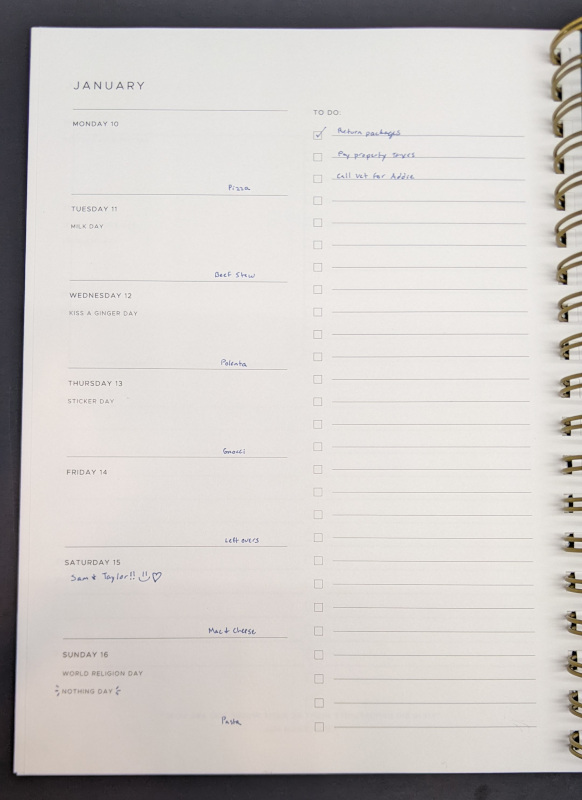 JANUARY
MONDAY 10
Pizza
TUESDAY 11
MILK DAY
Beef Stew
WEDNESDAY 12
KISS A GINGER DAY
Polenta
THURSDAY 13
STICKER DAY
Gnocci
FRIDAY 14
Leftovers
SATURDAY 15
Sam & Taylor!!
Mac & Cheese
SUNDAY 16
WORLD RELIGION DAY
NOTHING DAY
Pasta
TO DO:
Return packages
Pay property taxes
Call vet for Addie